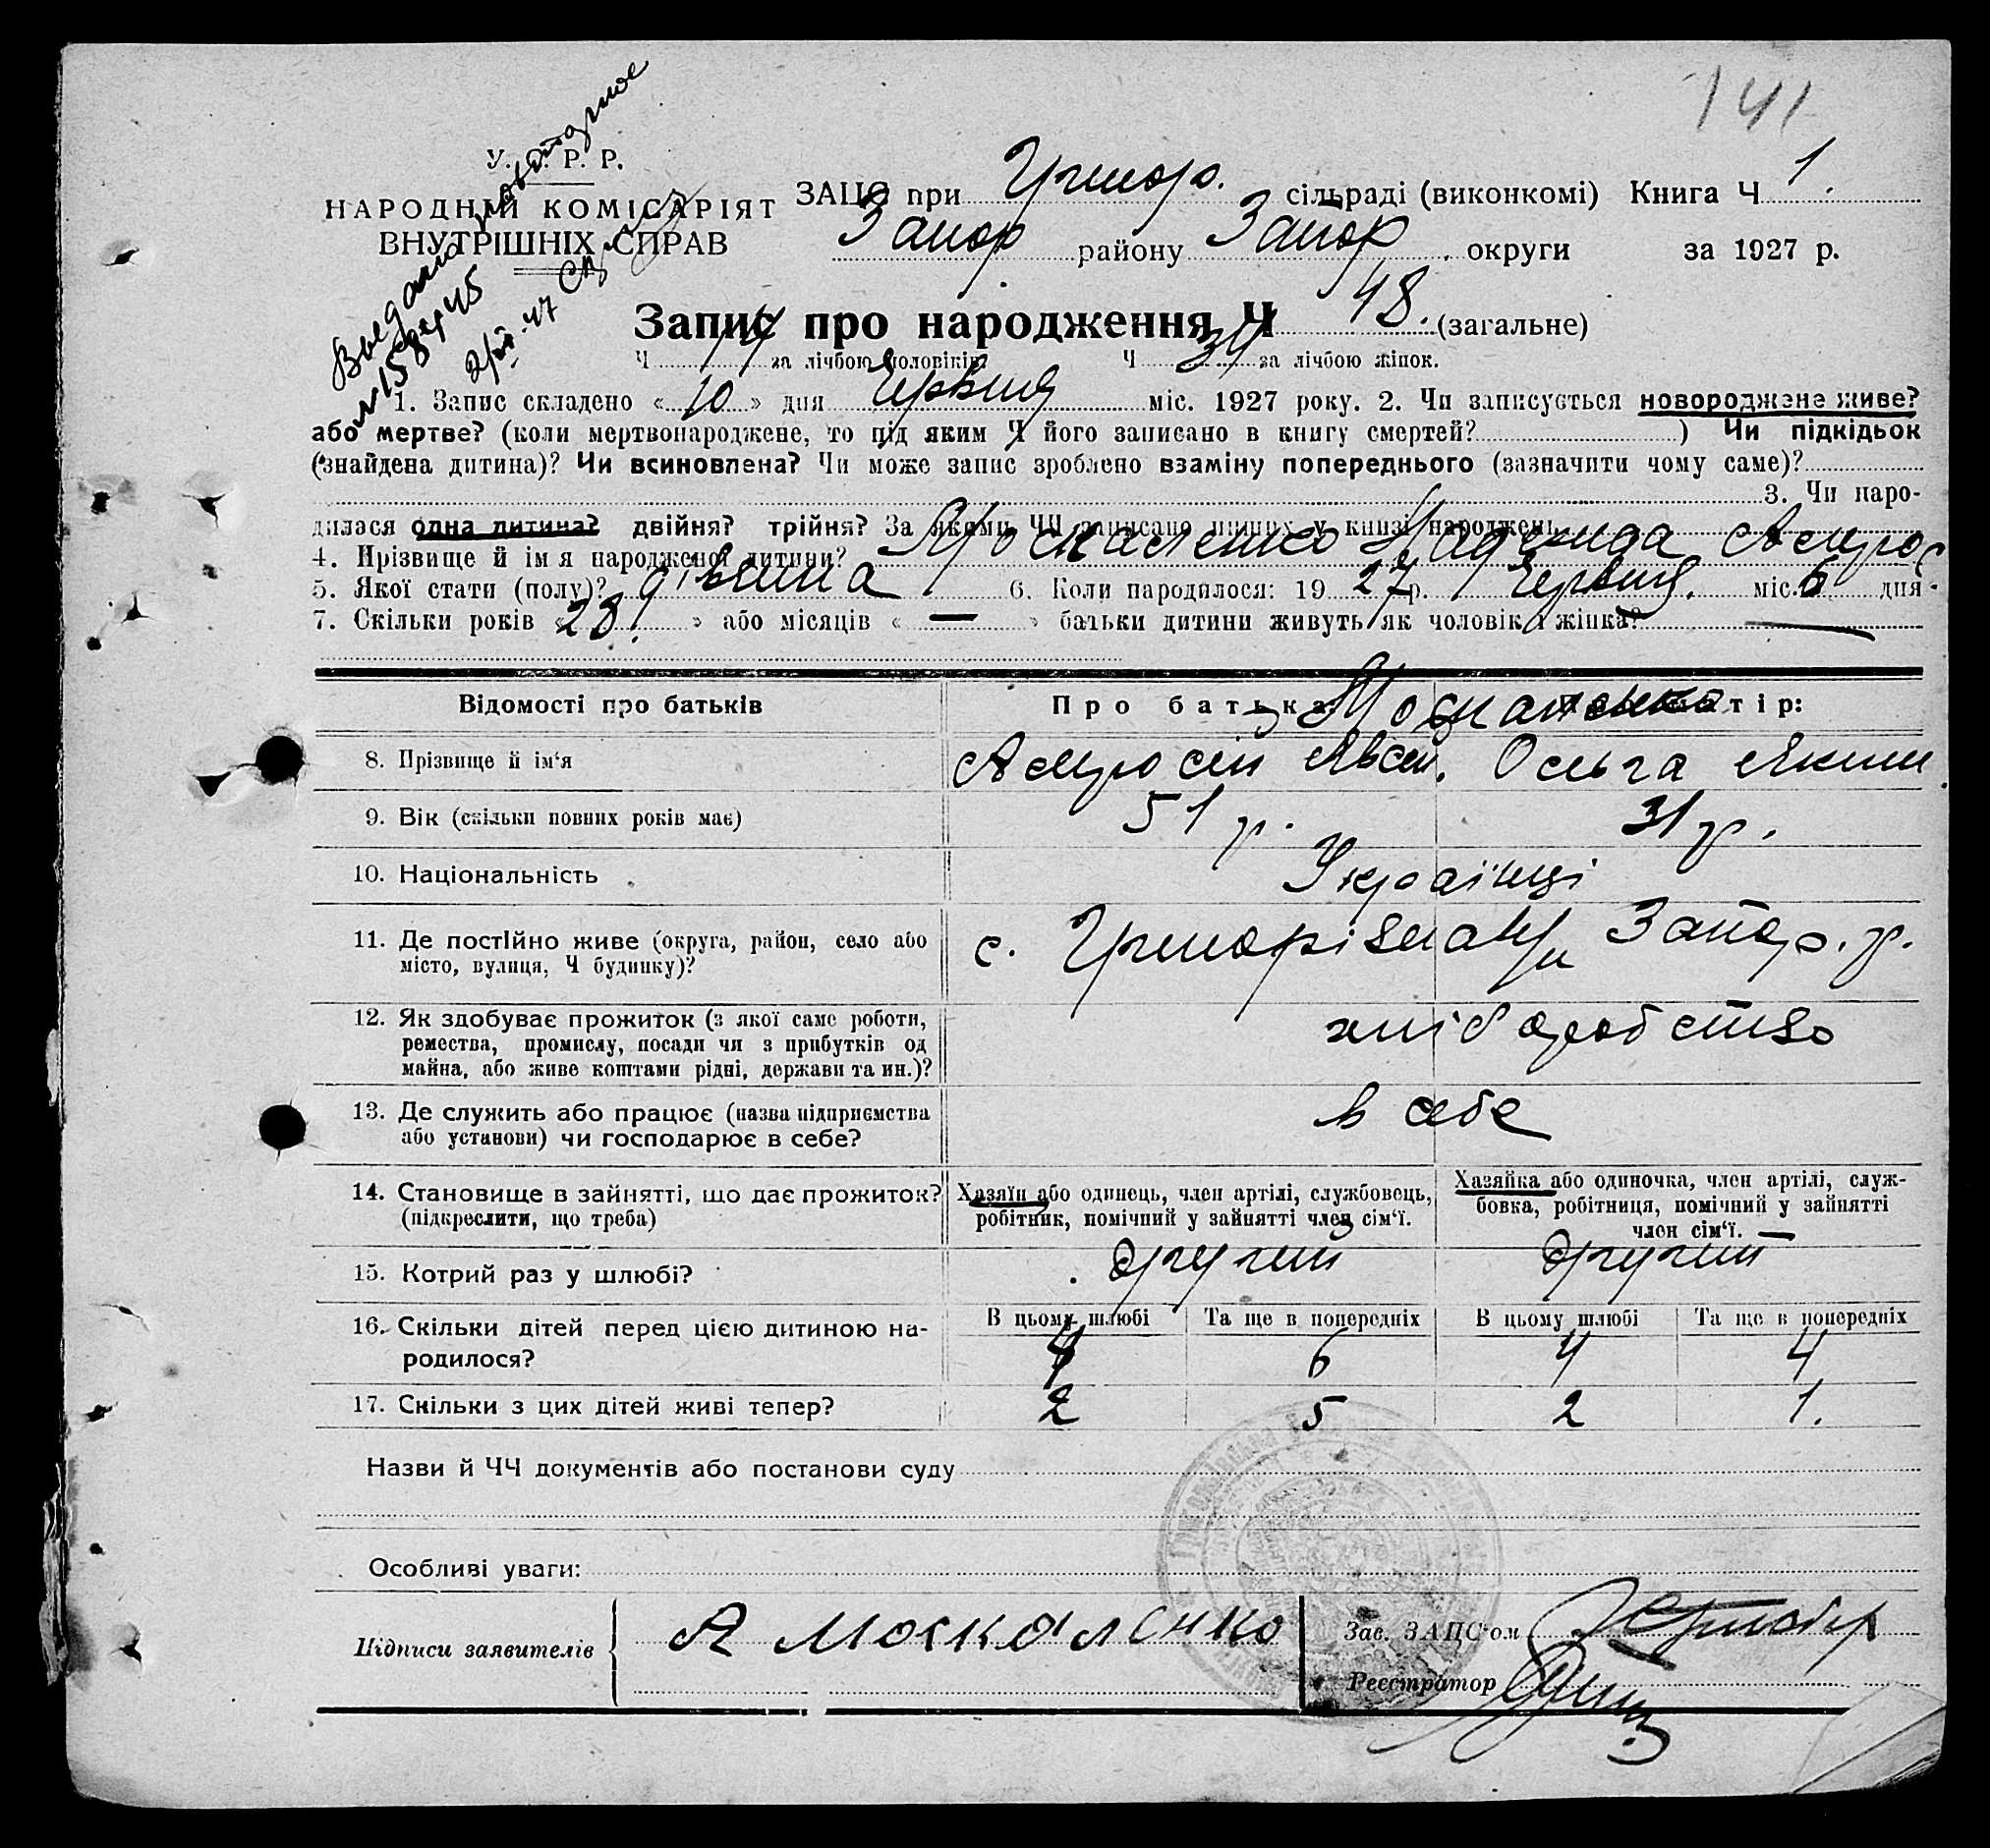 141
У. С. Р. Р.
НАРОДНІЙ КОМІСАРІЯТ
ВНУТРІШНІХ СПРАВ
Выдано повторное
№ 158445
ЗАЦС при Григор. сільраді (виконкомі) Книга Ч 1.
Запор району Запор. округи за 1927 р.
Запис про народження Ч 48. (загальне)
Ч 14 за лічбою чоловіків Ч 34 за лічбою жінок.
1. Запис складено «10» дня Червня міс. 1927 року. 2. Чи записується новороджене живе?
або мертве? (коли мертвонароджене, то під яким Ч його записано в книгу смертей? ) Чи підкідьок
(знайдена дитина)? Чи всиновлена? Чи може запис зроблено взаміну попереднього (зазначити чому саме)?
3. Чи наро-
дилася одна дитина? двійня? трійня? За якими ЧЧ записано инших у книзі народжень
4. Прізвище й ім'я народженої дитини? Москаленко Надежида Амврос
5. Якої стати (полу)? дівчина 6. Коли народилося: 1927р. Червня. міс. 6 дня.
7. Скільки років «28» або місяців « — » батьки дитини живуть як чоловік і жінка? —
Відомості про батьків Про батька: Про матір:
Москаленко
8. Прізвище й ім'я Амвросій Явсей. Ольга Яким.
9. Вік (скільки повних років має) 51 р. 31 р.
10. Національність Українці
11. Де постійно живе (округа, район, село або
місто, вулиця, Ч будинку)? с. Григорівка Запор. р.
12. Як здобуває прожиток (з якої саме роботи,
ремества, промислу, посади чи з прибутків од
майна, або живе коштами рідні, держави та ин.)? хліборобство
13. Де служить або працює (назва підприємства
або установи) чи господарює в себе? в себе
14. Становище в зайнятті, що дає прожиток?
(підкреслити, що треба)
Хазяїн або одинець, член артілі, службовець,
робітник, помічний у зайнятті член сім'ї.
Хазяйка або одиночка, член артілі, служ-
бовка, робітниця, помічний у зайнятті
член сім'ї. —
15. Котрий раз у шлюбі? другий другий
16. Скільки дітей перед цією дитиною на-
родилося?
В цьому шлюбі Та ще в попередніх В цьому шлюбі Та ще в попередніх
4 6 4 4
17. Скільки з цих дітей живі тепер? 2 5 2 1.
Назви й ЧЧ документів або постанови суду
Особливі уваги:
Підписи заявителів А Москаленко
Зав. ЗАЦС'ом
Реєстратор